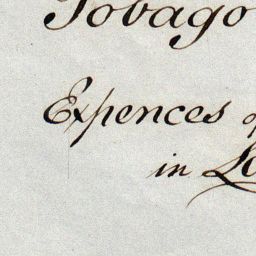 Tobago
Expences
in